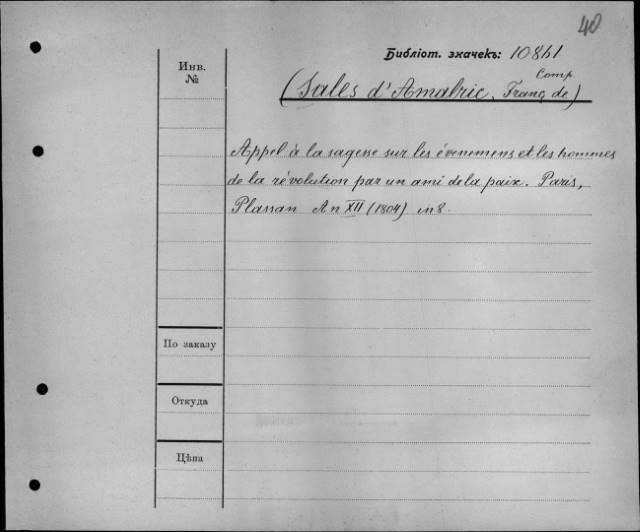 40
Библіот. значекъ: 10861
Инв.
№
Comp.
(Sales d'Amalric, Franç de)
Appel à la sagesse sur les évenemens et les hommes
de la révolution par un ami de la paix. Paris,
Plassan An XII (1804) in 8.
По заказу
Откуда
Цѣна